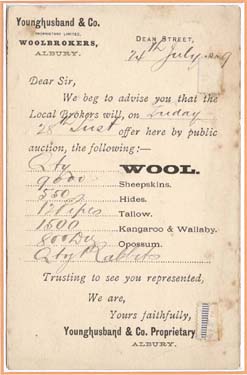 Younghusband & Co.
PROPRIETARY LIMITED,
WOOLBROKERS,
ALBURY.
DEAN STREET,
24th July
Dear Sir,
We beg to advise you that the
Local Brokers will, on Friday
28th Inst offer here by public
auction, the following:—
Qty WOOL.
9000 Sheepskins.
550 Hides.
12 Pipes Tallow.
1500 Kangaroo & Wallaby.
800 Do Opossum.
Qty Rabbits
Trusting to see you represented,
We are,
Yours faithfully,
Younghusband & Co. Proprietary
ALBURY.